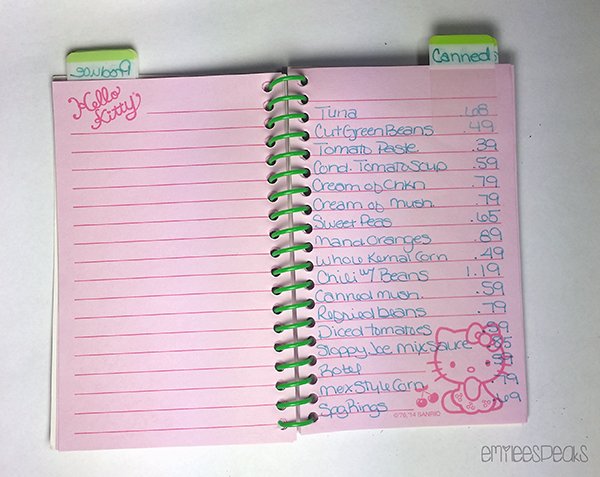 Produce
Canned
Hello
Kitty
Tuna .68
Cut Green Beans .49
Tomato Paste .39
Cond. Tomato Soup .59
Cream of Chkn .79
Cream of mush. .79
Sweet Peas .65
Mand Oranges
Whole Kernal Corn .49
Chili w/ Beans 1.19
Canned mush. .59
Refried beans .79
Diced tomatoes
Sloppy Joe Mix Sauce
Rotel
Mex Style Corn .79
Spg Rings .69
©'76,'14 SANRIO
emileespeaks